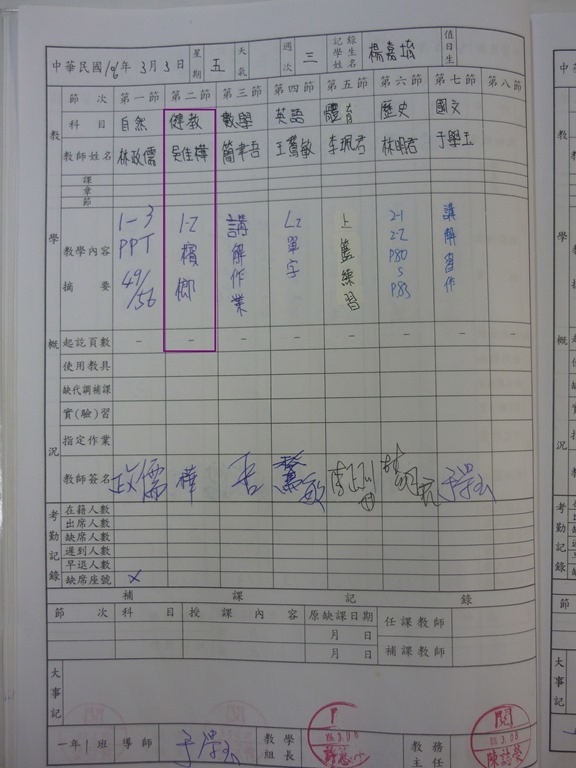 中華民國106年3月3日 星期 五 天氣 週次 三 記錄學生姓名 楊嘉 值日生
教學概況
節次 第一節 第二節 第三節 第四節 第五節 第六節 第七節 第八節
科目 自然 健教 數學 英語 體育 歷史 國文
教師姓名 林政儒 吳佳樺 簡聿吾 王鶯敏 李珮君 林明君 于學玉
課
章
節
教學內容摘要 1-3 PPT 49/56 1-2 檳榔 講解作業 L2單字 上籃練習 2-1 2-2 P80 S P83 講解習作
起訖頁數 - - - - - - -
使用教具
缺代調補課
實(驗)習
指定作業
教師簽名 政儒 樺 吾 敏 于學玉
考勤記錄
在籍人數
出席人數
缺席人數
遲到人數
早退人數
缺席座號 x
補課記錄
節次 科目 授課內容 原缺課日期 任課教師
月 日
月 日 補課教師
大事記
一年1班 導師 于學玉 教學組長 教務主任
閱